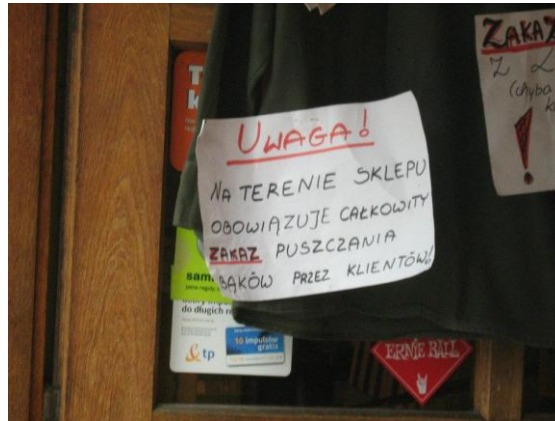 UWAGA!
NA TERENIE SKLEPU
OBOWIĄZUJE CAŁKOWITY
ZAKAZ PUSZCZANIA
BĄKÓW PRZEZ KLIENTÓW!
ZAKAZ
Z
(chyba
!
sam
do długich
10 impulsów
gratis
tp
ERNIE BALL